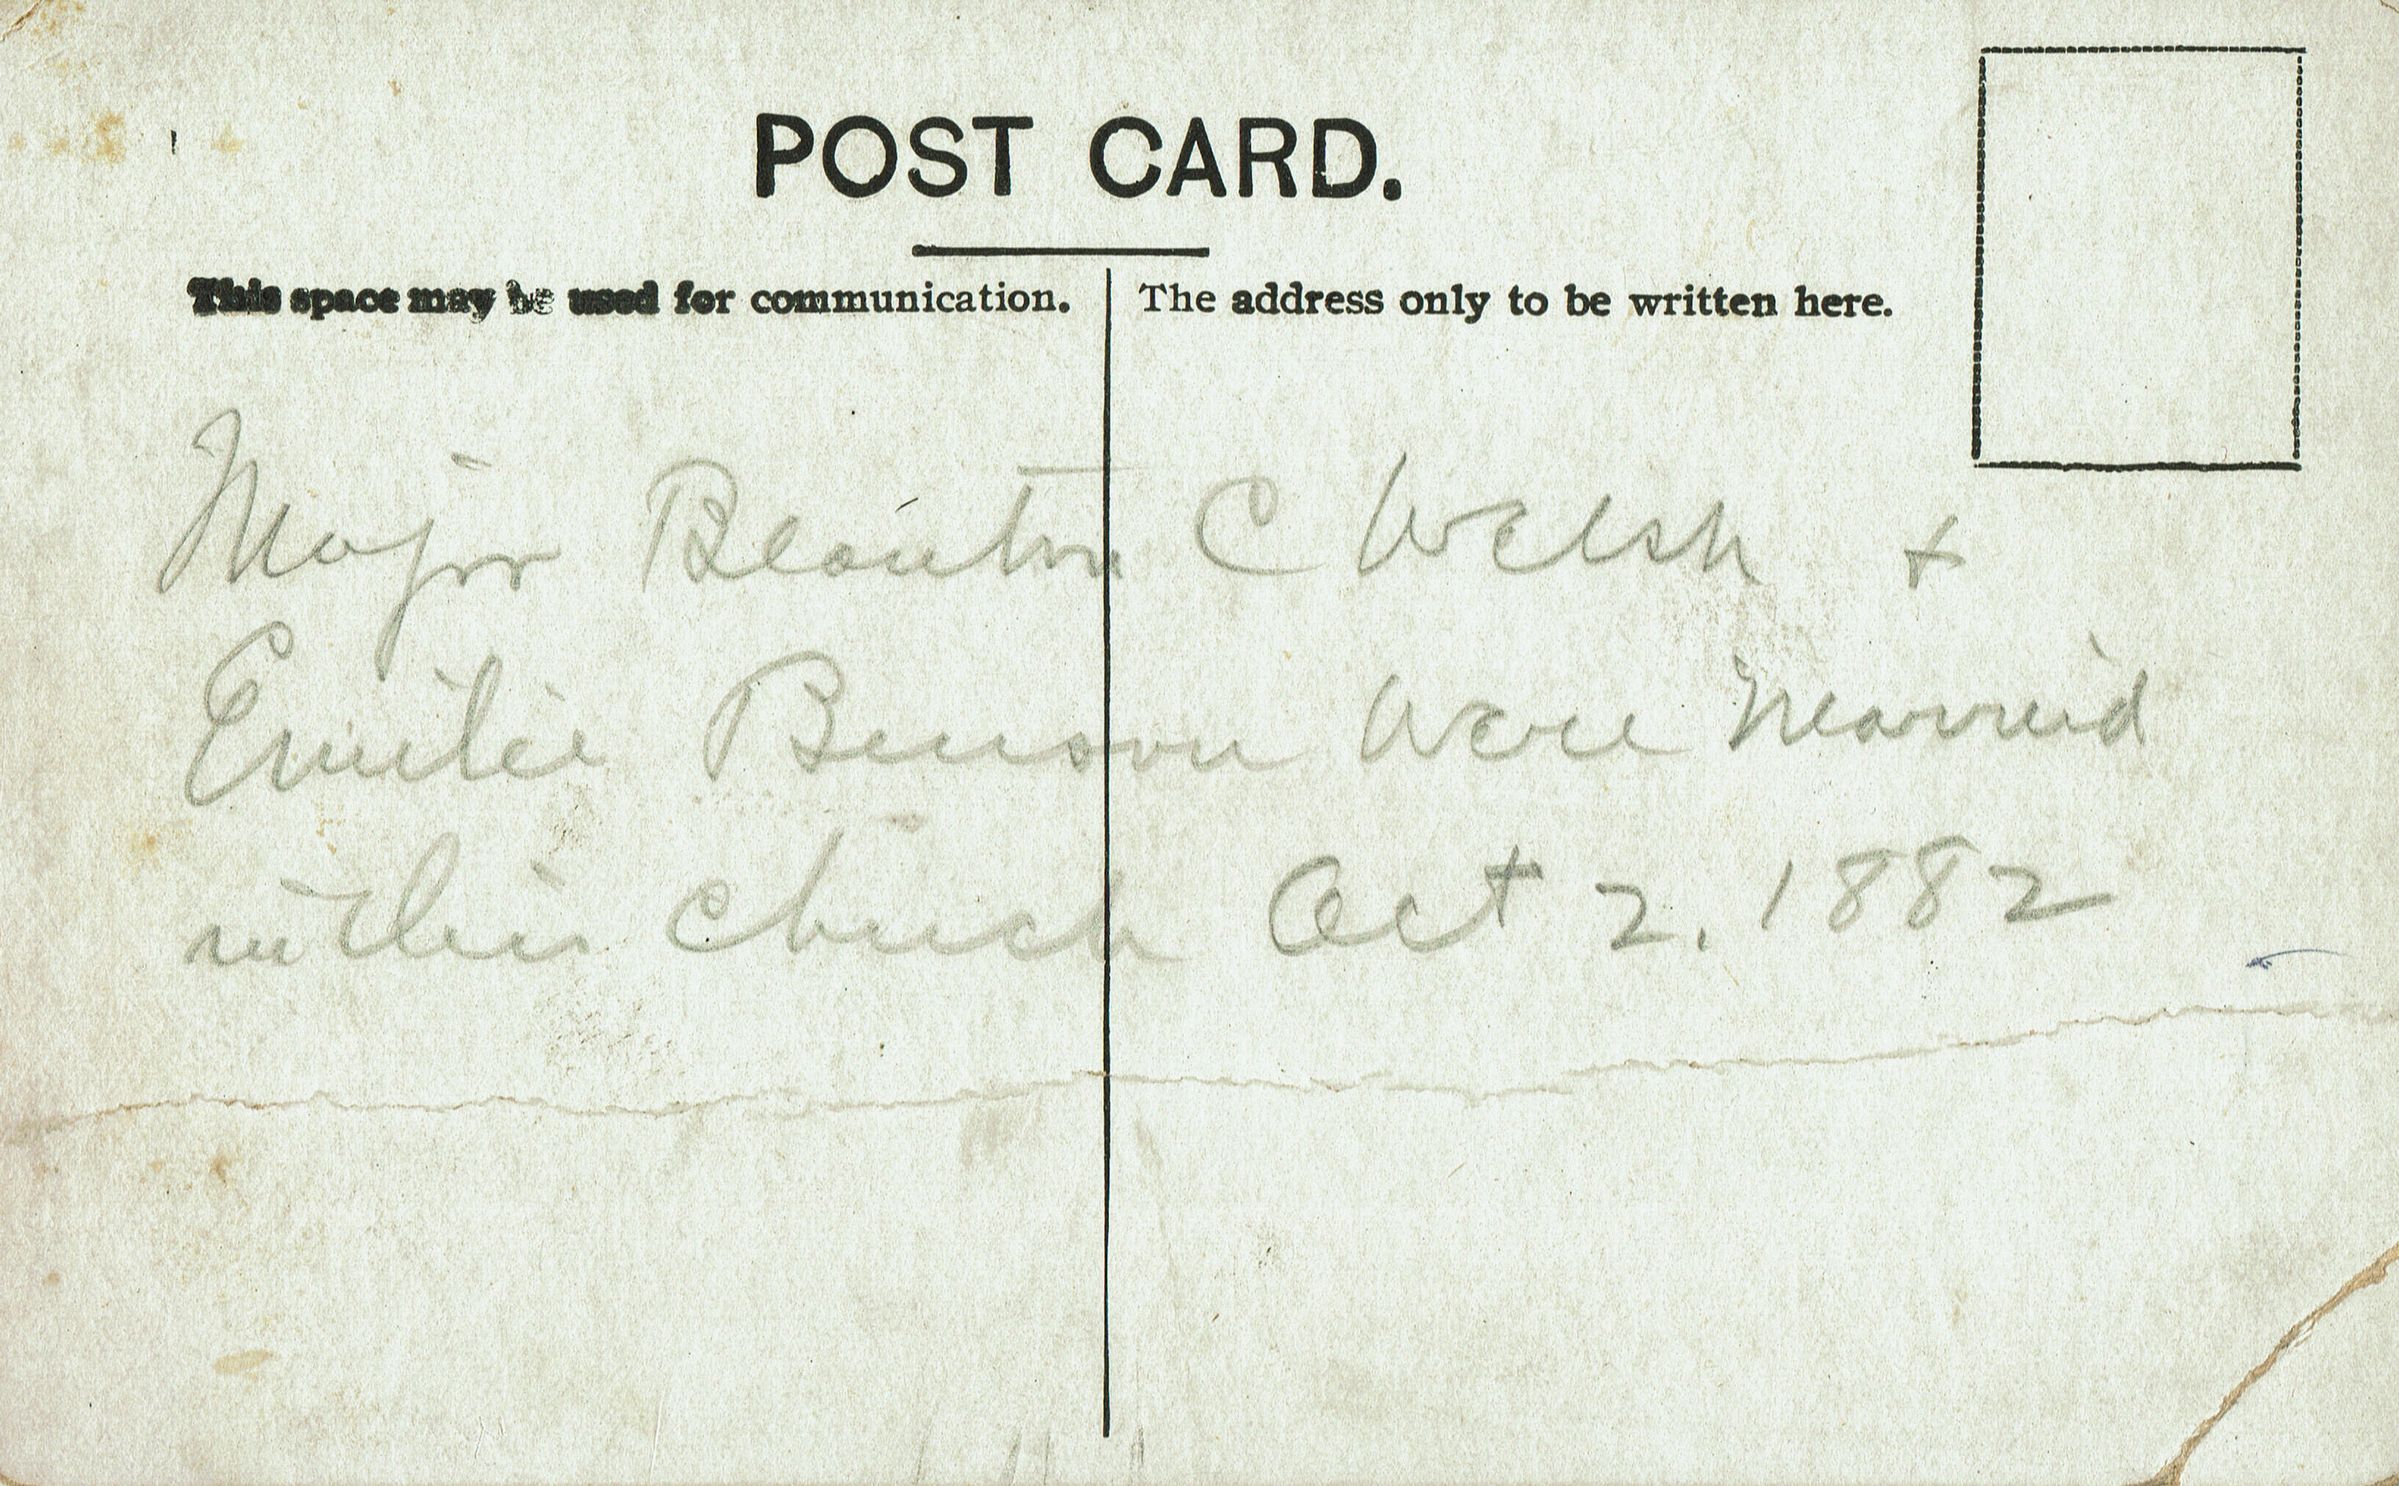 POST CARD.
This space may be used for communication.
The address only to be written here.
Major Blanton C Welsh +
Emilie Benson Were Married
in this church Oct 2, 1882